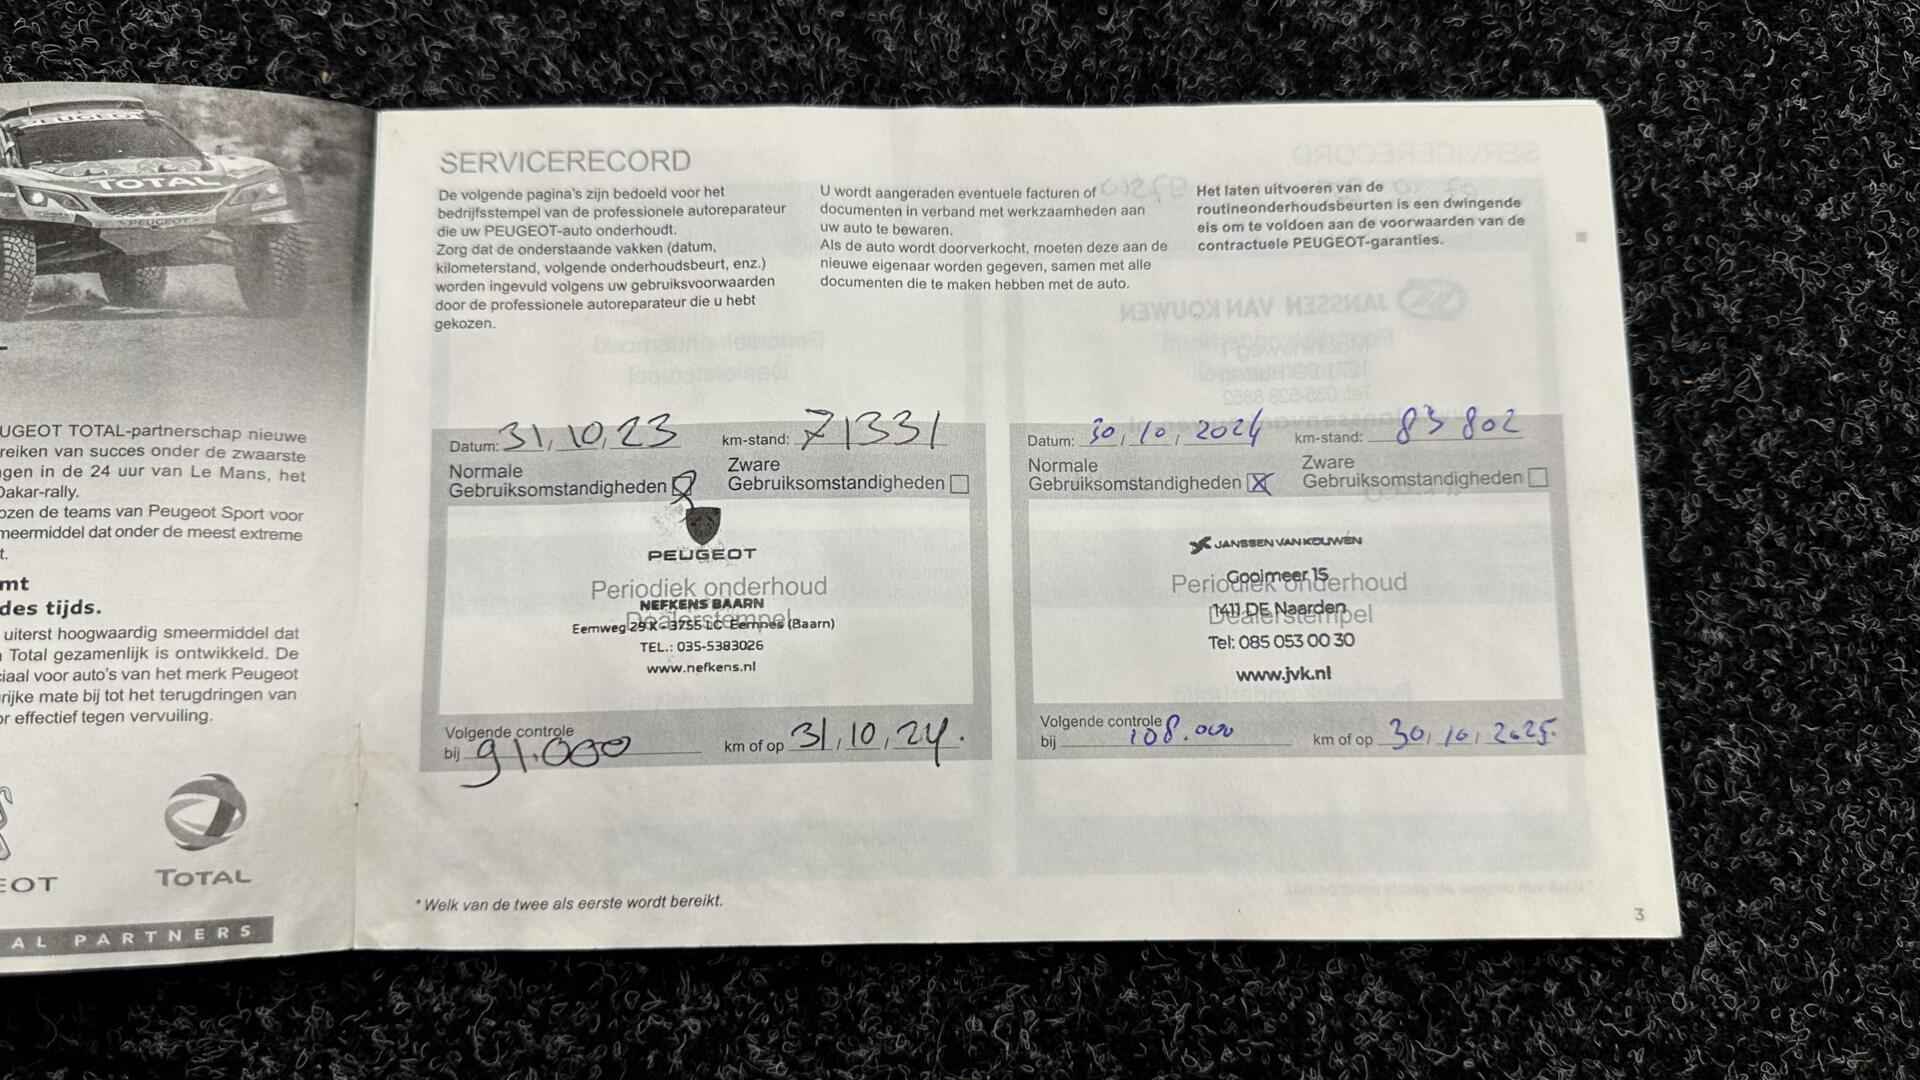 PEUGEOT
TOTAL
PEUGEOT
UGEOT TOTAL-partnerschap nieuwe
reiken van succes onder de zwaarste
gen in de 24 uur van Le Mans, het
Dakar-rally.
ozen de teams van Peugeot Sport voor
meermiddel dat onder de meest extreme
t.
mt
des tijds.
uiterst hoogwaardig smeermiddel dat
Total gezamenlijk is ontwikkeld. De
ciaal voor auto's van het merk Peugeot
rijke mate bij tot het terugdringen van
or effectief tegen vervuiling.
EOT
TOTAL
AL PARTNERS
SERVICERECORD
De volgende pagina's zijn bedoeld voor het
bedrijfsstempel van de professionele autoreparateur
die uw PEUGEOT-auto onderhoudt.
Zorg dat de onderstaande vakken (datum,
kilometerstand, volgende onderhoudsbeurt, enz.)
worden ingevuld volgens uw gebruiksvoorwaarden
door de professionele autoreparateur die u hebt
gekozen.
U wordt aangeraden eventuele facturen of
documenten in verband met werkzaamheden aan
uw auto te bewaren.
Als de auto wordt doorverkocht, moeten deze aan de
nieuwe eigenaar worden gegeven, samen met alle
documenten die te maken hebben met de auto.
Het laten uitvoeren van de
routineonderhoudsbeurten is een dwingende
eis om te voldoen aan de voorwaarden van de
contractuele PEUGEOT-garanties.
Datum: 31, 10, 23 km-stand: 71331
Normale Gebruiksomstandigheden Zware Gebruiksomstandigheden
PEUGEOT
Periodiek onderhoud
NEFKENS BAARN
Dealerstempel
Eemweg 29 K - 3755 LC Eemnes (Baarn)
TEL.: 035-5383026
www.nefkens.nl
Volgende controle
bij 91.000 km of op 31, 10, 24.
Datum: 30, 10, 2024 km-stand: 83 802
Normale Gebruiksomstandigheden X Zware Gebruiksomstandigheden
JANSSEN VAN KOUWEN
Gooimeer 15
Periodiek onderhoud
1411 DE Naarden
Dealerstempel
Tel: 085 053 00 30
www.jvk.nl
Volgende controle
bij 108.000 km of op 30, 10, 2025.
* Welk van de twee als eerste wordt bereikt.
3